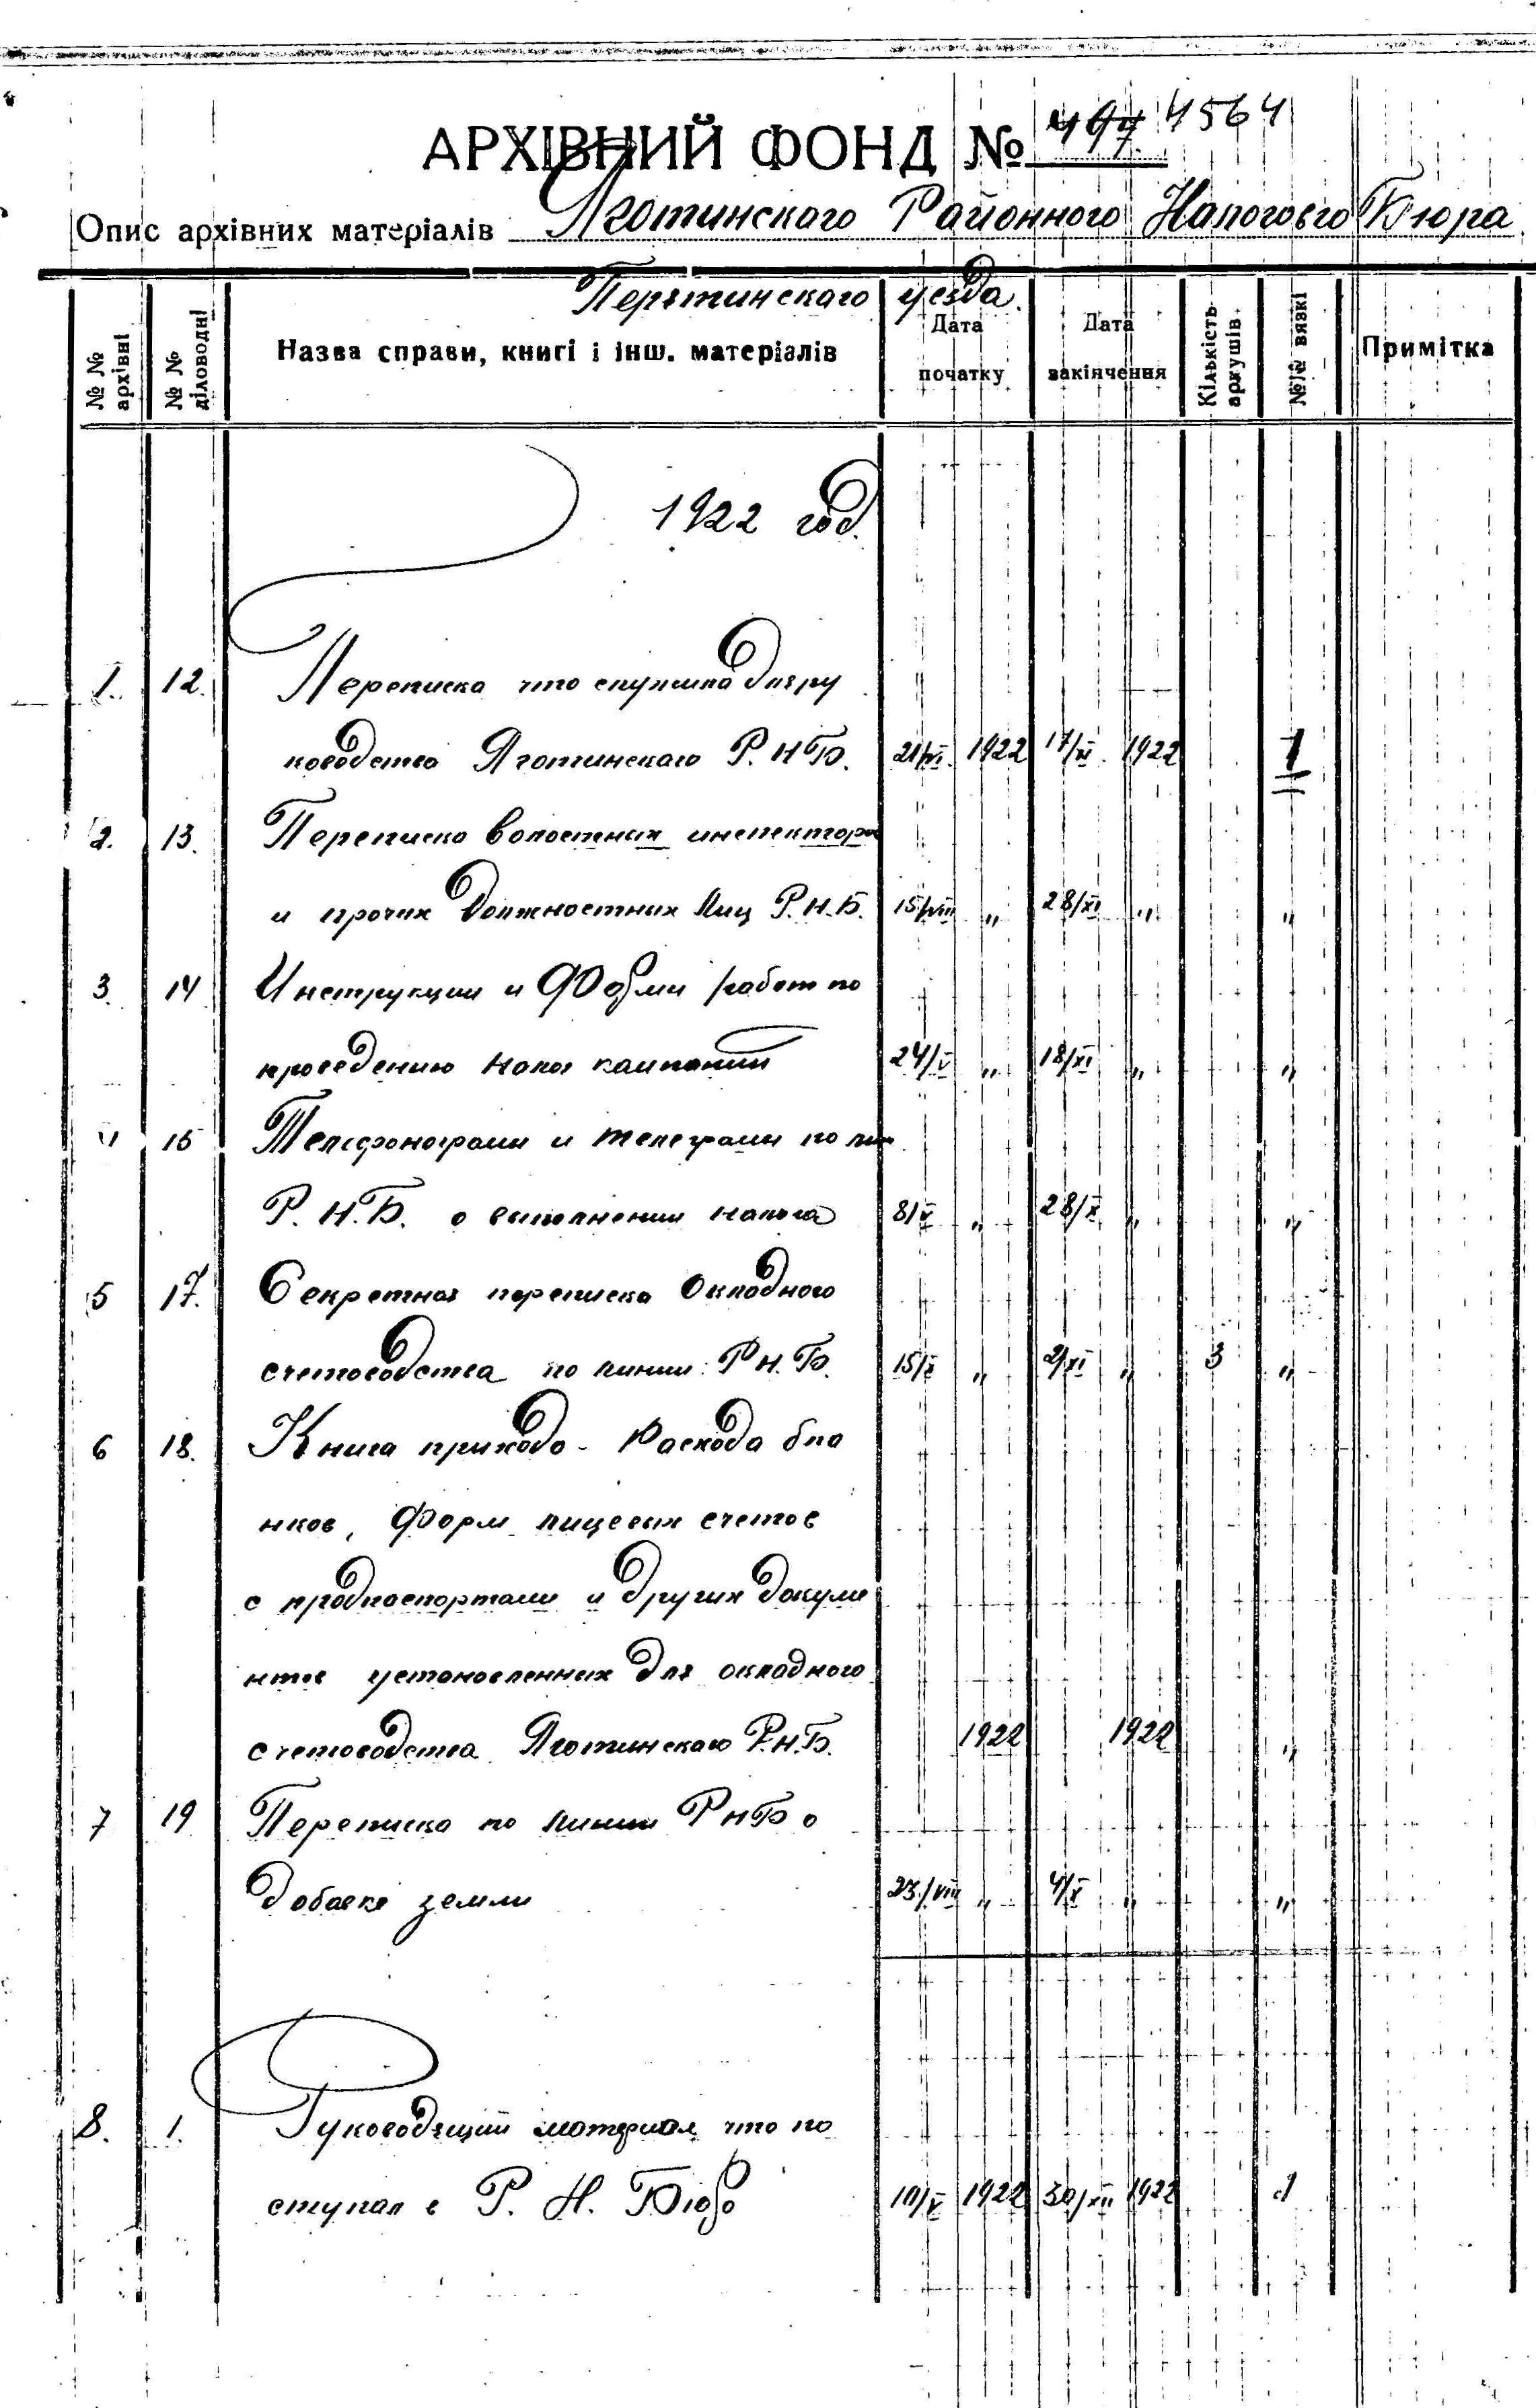 АРХІВНИЙ ФОНД № 497 4564
Опис архівних матеріалів Яготинского Районного Налогового Бюра
уезда.
№ № архівні
№ № діловодні
Назва справи, книгі і інш. матеріалів
Дата початку
Дата закінчення
Кількість аркушів.
№№ вязкі
Примітка
1922 год.
1. 12. Переписка что служила для ру
ководства Яготинскаго Р. Н. Б. 21/VI. 1922 17/XI. 1922 1
2. 13. Переписка волостних инспекторов
и прочих должностних лиц Р. Н. Б. 15/VIII " 28/XI " "
3 14 Инструкции и Форми работ по
проведению налог кампании 24/V " 18/XI " "
4 15 Телефонограми и телеграми по лин
Р. Н. Б. о выполнении налога 8/X " 28/X " "
5 17. Секретная переписка Окладного
счетоводства по линии Р. Н. Б. 15/X " 2/XI " 3 "
6 18. Книга приходо-Расхода бла
нков, Форм лицевых счетов
с продпаспортами и других докуме
нтов установленних для окладного
счетоводства Яготинскаго Р.Н.Б. 1922 1922 "
7 19 Переписка по линии Р Н Б о
добавке земли 23/VIII " 4/X " "
8. 1. Руководящий материал что по
ступал в Р. Н. Бюро 10/V 1922 30/XII 1922 1